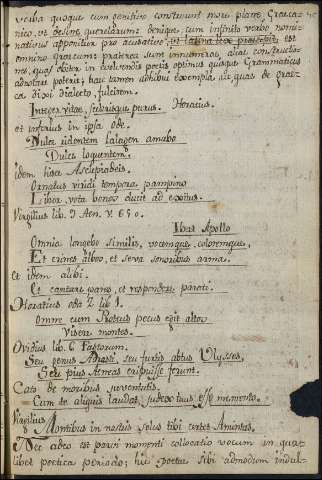 verba quoque cum genitivo construunt more plane Graeca-
nico, ut desine querelarum: denique, cum infinito verbo nomi-
nativus apponitur pro accusativo, est
omnino graecum: praeterea sunt innumerae aliae constructio-
nes, quas obiter in evolvendis poetis optimus quisque Grammaticus
adnotare poterit; hac tamen adhibui exempla aliquas de graeca
dialecto, fulcirem.
Integer vitae, scelerisque purus. Horatius.
et inferius in ipsa ode.
Dulce ridentem Lalagen amabo
Dulce loquentem.
idem hisce Asclepiadeis.
Ornatus viridi tempora pampino
Liber, vota bonos ducit ad exitus.
Virgilius lib. 9 Aen. v. 650.
Ibat Apollo
Omnia longaevo similis, vocemque, coloremque,
Et crines albos, et saeva sonoribus arma.
et idem alibi.
Et cantare pares, et respondere parati.
Horatius oda 2 lib 1.
Omne cum Proteus pecus egit altos
Visere montes.
Ovidius lib. 6 Fastorum.
Seu genus Adrasti, seu furtis aptus Ulysses,
Seu pius Aeneas eripuisse ferunt.
Cato de moribus juventutis.
Cum te aliquis laudat, judex tuus esse memento.
Virgilius
Montibus in nostris solus tibi certet Amintas.
Nec adeo est parvi momenti collocatio vocum in qua-
libet poetica periodo; hic poetae sibi admodum indul-